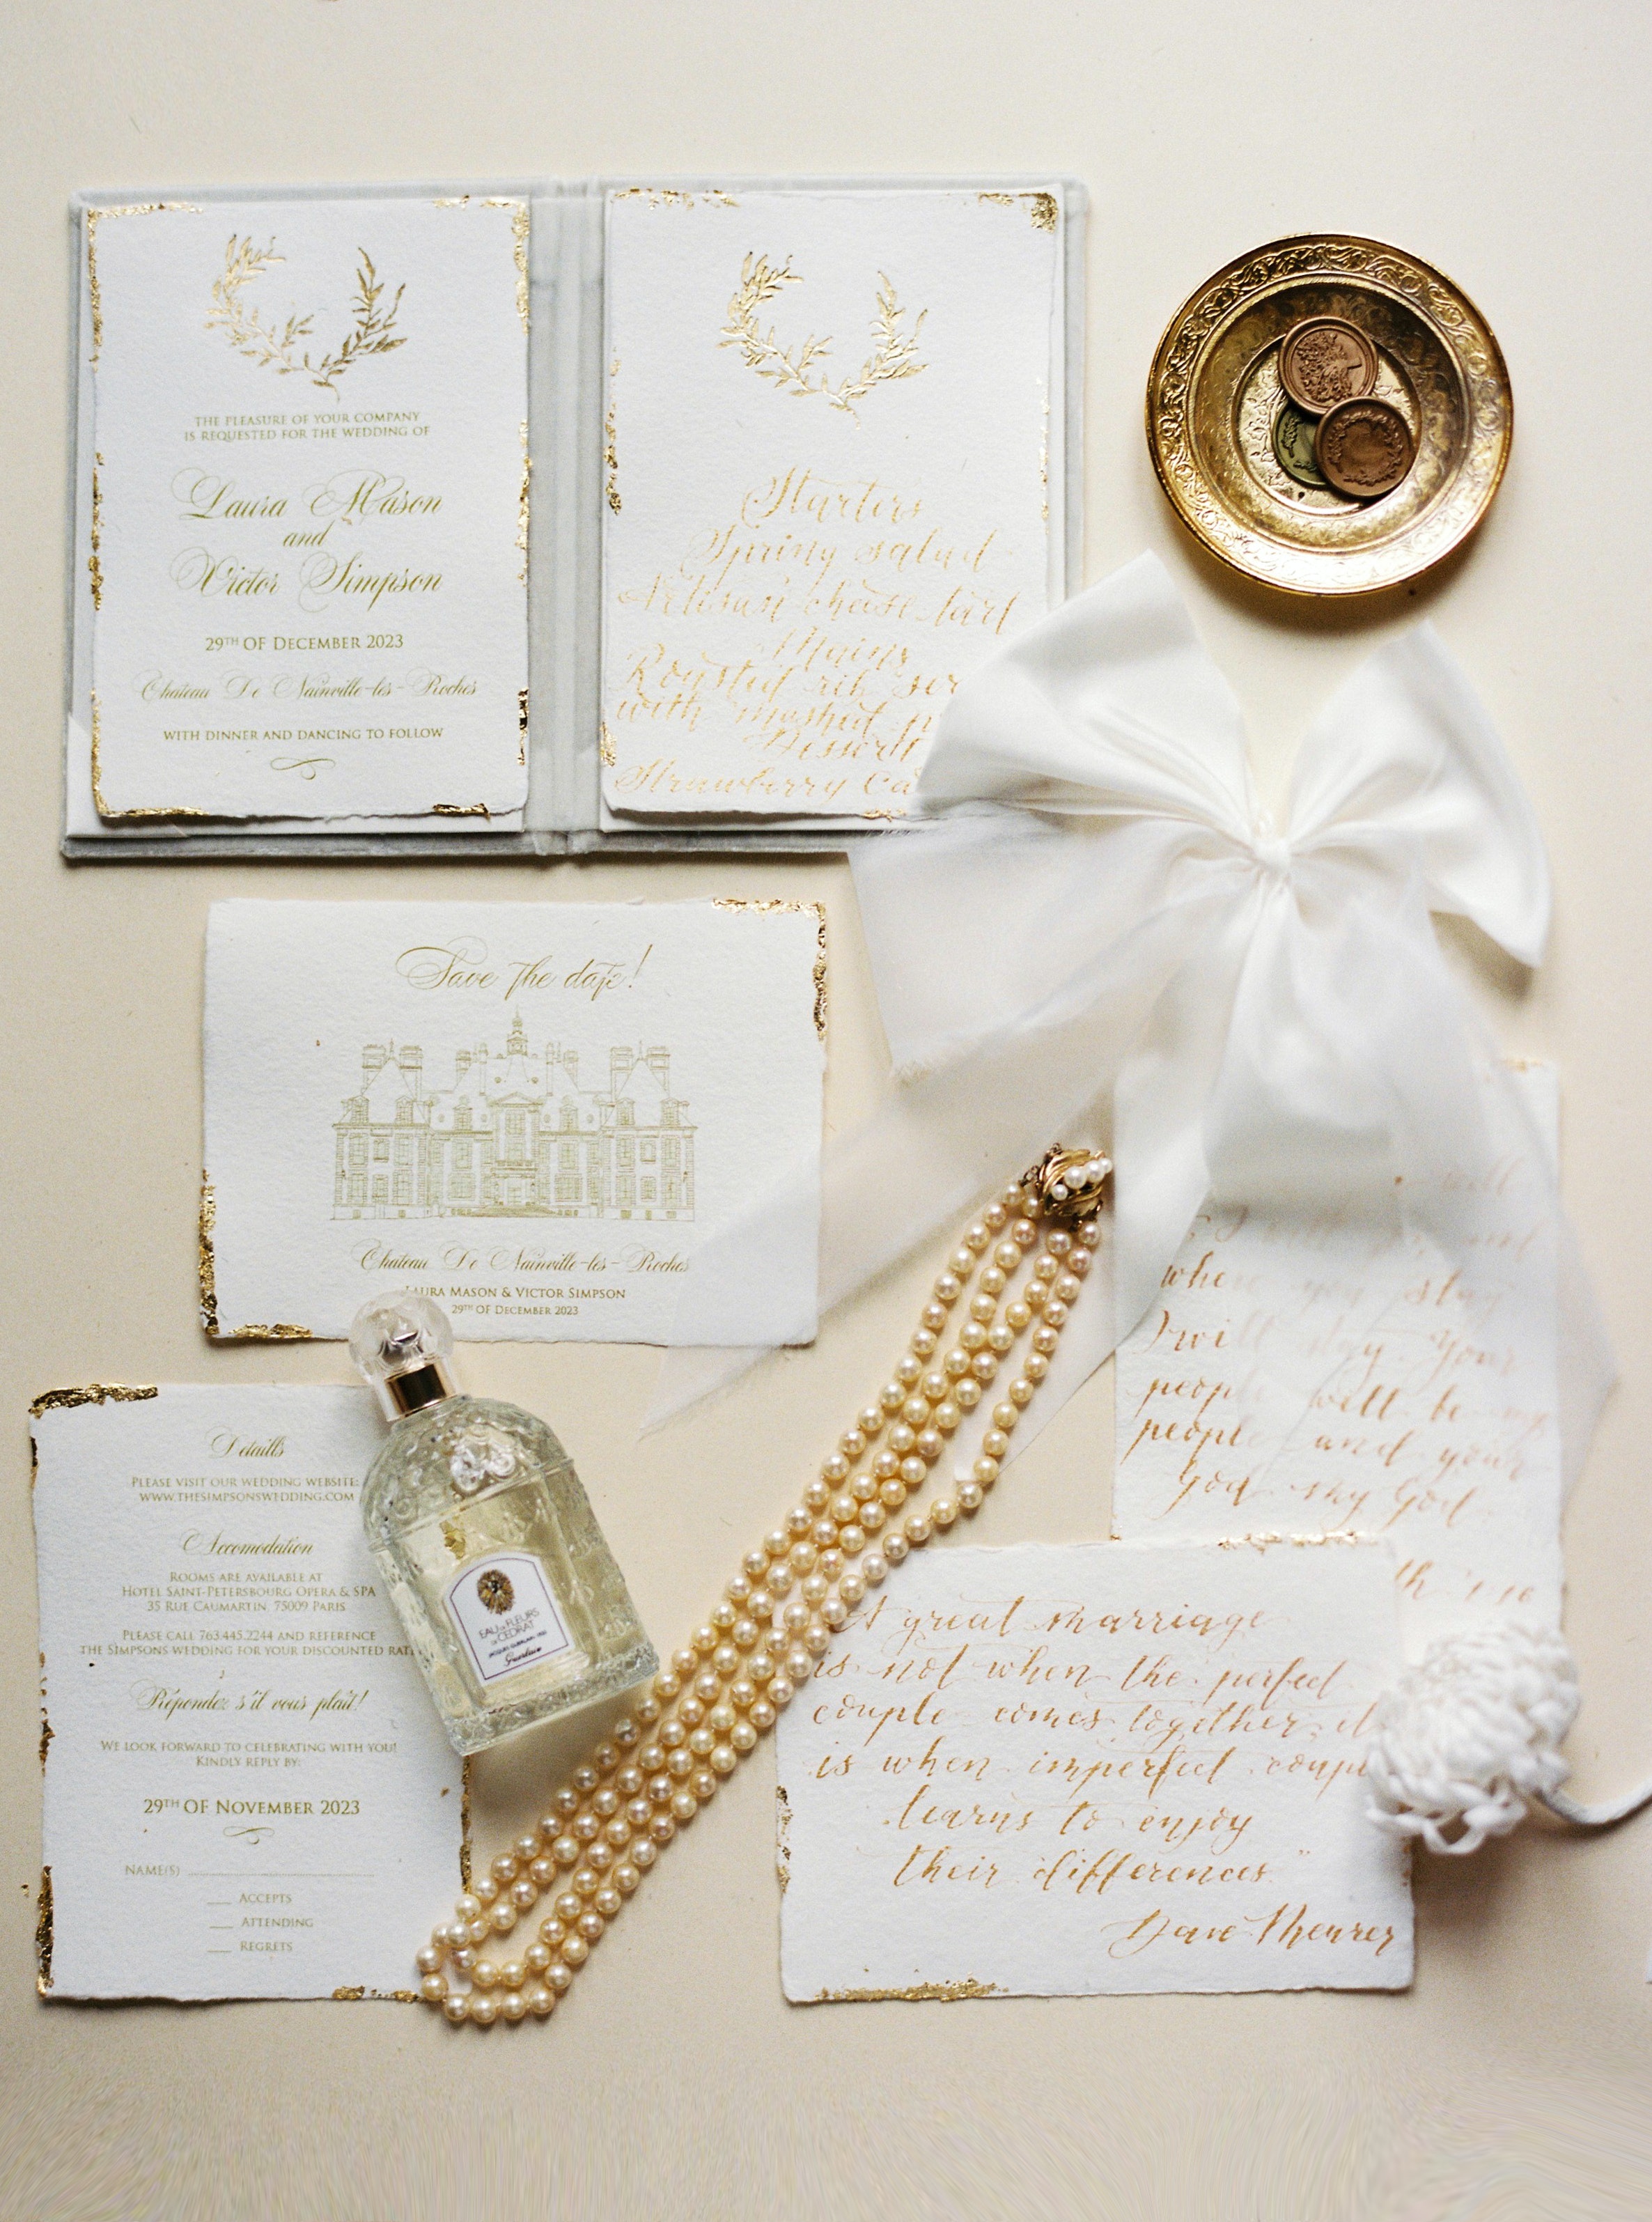 THE PLEASURE OF YOUR COMPANY
IS REQUESTED FOR THE WEDDING OF
Laura Mason
and
Victor Simpson
29TH OF DECEMBER 2023
Chateau De Nainville-les-Roches
WITH DINNER AND DANCING TO FOLLOW
Starters
Spring salad
Artisan cheese tart
Mains
Roasted rib
with mashed
Dessert
Strawberry
Save the date!
Chateau De Nainville-les-Roches
LAURA MASON & VICTOR SIMPSON
29TH OF DECEMBER 2023
Detaills
PLEASE VISIT OUR WEDDING WEBSITE:
WWW.THESIMPSONSWEDDING.COM
Accomodation
ROOMS ARE AVAILABLE AT
HOTEL SAINT-PETERSBOURG OPERA & SPA
35 RUE CAUMARTIN, 75009 PARIS
PLEASE CALL 763.445.2244 AND REFERENCE
THE SIMPSONS WEDDING FOR YOUR DISCOUNTED RAT
Répondez s'il vous plaît!
WE LOOK FORWARD TO CELEBRATING WITH YOU!
KINDLY REPLY BY:
29TH OF NOVEMBER 2023
NAME(S)
ACCEPTS
ATTENDING
REGRETS
EAU DE FLEURS
DE CEDRAT
JACQUES GUERLAIN 1920
Guerlain
I will
when you stay
I will stay Your
people will be my
people and your
God my God
A great marriage
is not when the perfect
couple comes together, it
is when imperfect coupl
learns to enjoy
their differences."
Dave Meurer